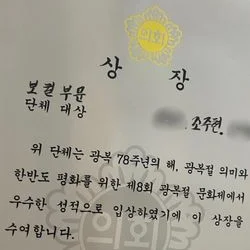 의회
상 장
보컬 부문
단체 대상
소주현
위 단체는 광복 78주년의 해, 광복절 의미와
한반도 평화를 위한 제8회 광복절 문화제에서
우수한 성적으로 입상하였기에 이 상장을
수여합니다.
의회